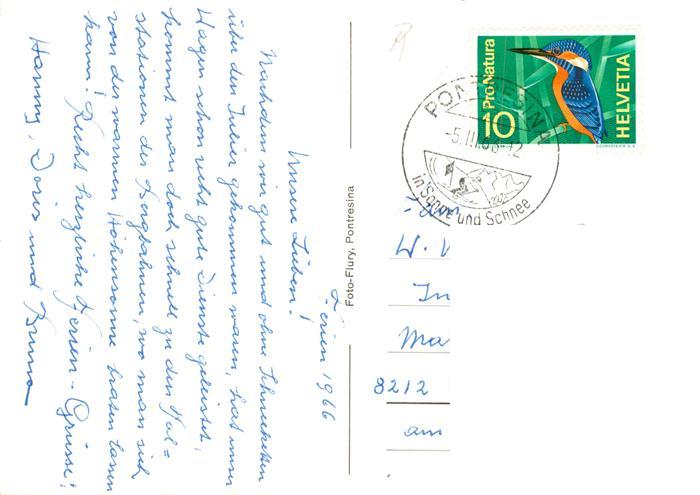 Ferien 1966
Unsere Lieben!
Nachdem wir gut und ohne Schneeketten
über den Julier gekommen waren, hat unser
Wagen schon sehr gute Dienste geleistet,
kommt man doch schnell zu den Tal=
stationen der Bergbahnen, wo man sich
von der warmen Höhensonne braten lassen
kann. Recht herzliche Ferien-Grüsse!
Hanny, Doris und Bruno
Foto-Flury, Pontresina
Pro Natura
10
HELVETIA
COURVOISIER S.A.
PONTRESINA
-5.III.66-12
in Sonne und Schnee
Fam
W. V
In
Ma
8212
am